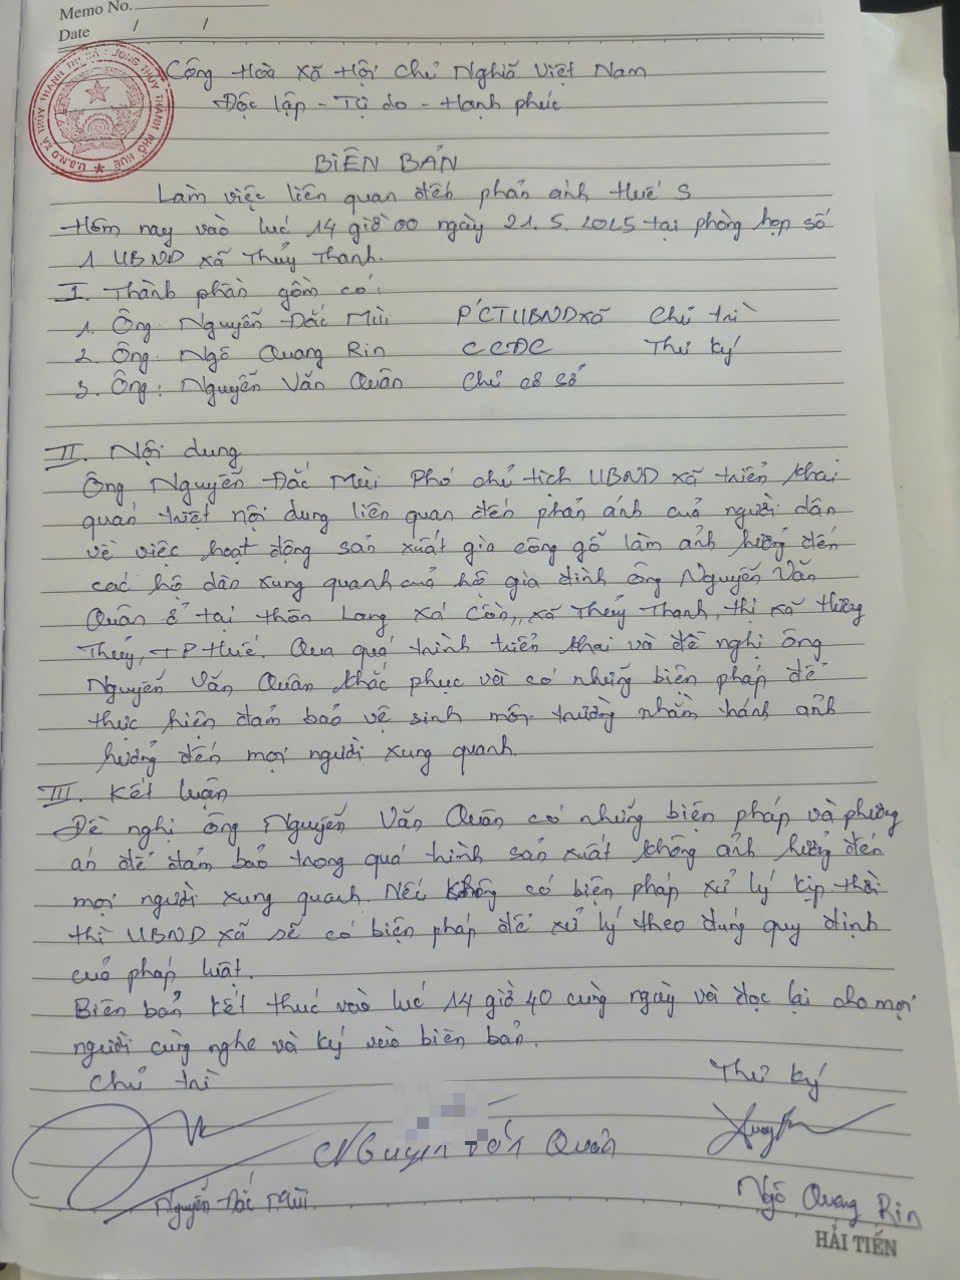 Memo No.
Date / /
U.B.N.D XÃ THỦY THANH THỊ XÃ HƯƠNG THỦY THÀNH PHỐ HUẾ
Cộng Hoà Xã Hội Chủ Nghĩa Việt Nam
Độc lập - Tự do - Hạnh phúc
BIÊN BẢN
Làm việc liên quan đến phản ánh Huế S
Hôm nay vào lúc 14 giờ 00 ngày 21.5.2025 tại phòng họp số
1 UBND xã Thủy Thanh.
I. Thành phần gồm có:
1. Ông Nguyễn Đắc Mùi PCTUBND xã Chủ trì
2. Ông. Ngô Quang Rin CCĐC Thư ký
3. Ông: Nguyễn Văn Quân Chủ cơ sở
II. Nội dung
Ông Nguyễn Đắc Mùi Phó chủ tịch UBND xã triển khai
quán triệt nội dung liên quan đến phản ánh của người dân
về việc hoạt động sản xuất gia công gỗ làm ảnh hưởng đến
các hộ dân xung quanh của hộ gia đình ông Nguyễn Văn
Quân ở tại thôn Lang Xá Cồn, xã Thủy Thanh, thị xã Hương
Thủy, TP Huế. Qua quá trình triển khai và đề nghị ông
Nguyễn Văn Quân khắc phục và có những biện pháp để
thực hiện đảm bảo vệ sinh môi trường nhằm tránh ảnh
hưởng đến mọi người xung quanh.
III. Kết luận
Đề nghị ông Nguyễn Văn Quân có những biện pháp và phương
án để đảm bảo trong quá trình sản xuất không ảnh hưởng đến
mọi người xung quanh. Nếu không có biện pháp xử lý kịp thời
thì UBND xã sẽ có biện pháp để xử lý theo đúng quy định
của pháp luật.
Biên bản kết thúc vào lúc 14 giờ 40 cùng ngày và đọc lại cho mọi
người cùng nghe và ký vào biên bản.
Chủ trì Thư ký
Nguyễn Văn Quân
Nguyễn Đắc Mùi Ngô Quang Rin
HẢI TIẾN